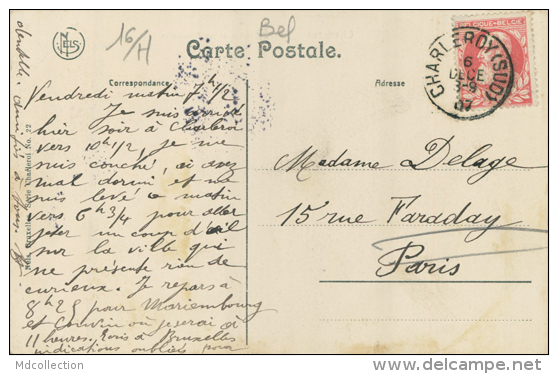 16/H
Bel
NELS
Carte Postale.
Correspondance
Adresse
BELGIQUE-BELGIE
CHARLEROY (SUD)
6
DECE
8-9
07
Vendredi matin 7h1/2
Je suis arrivé
hier soir à Charleroi
vers 10h1/2, je me
suis couché, ai assez
mal dormi et me
suis levé ce matin
vers 6h3/4 pour aller
jeter un coup d'œil
sur la ville qui
ne présente rien de
curieux. Je repars à
8h25 pour Mariembourg
et Couvin où je serai à
11 heures. à Bruxelles
indications oubliées pour
Madame Delage
15 rue Faraday
Paris
Nels, Bruxelles, Série Charleroi No. 22
© delcampe.net
MDCollection